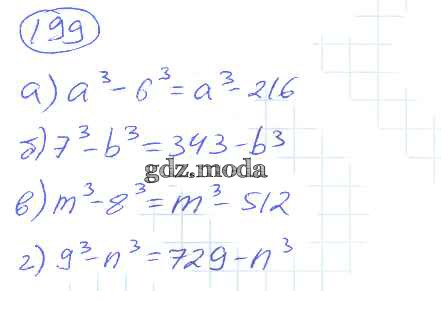 199
а) a³ - 6³ = a³ - 216
б) 7³ - b³ = 343 - b³
gdz.moda
в) m³ - 8³ = m³ - 512
г) 9³ - n³ = 729 - n³